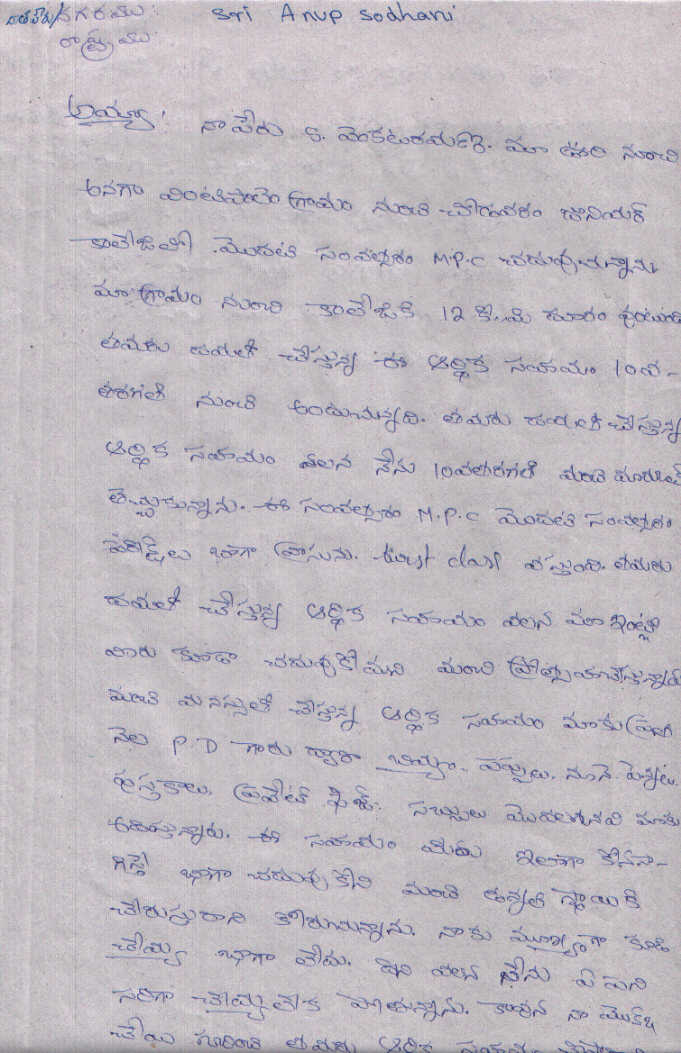 దాత పేరు/నగరము: Sri Anup Sodhani
రాష్ట్రము:
అయ్యా: నా పేరు S. మా ఊరి నుంచి
అనగా గ్రామం నుంచి జూనియర్
కాలేజిలో మొదటి సంవత్సరం M.P.C చదువుచున్నాను
మా గ్రామం నుంచి కాలేజికి 12 కి.మి దూరం వుంటుంది
తమరు దయతో చేస్తున్న ఈ ఆర్థిక సహాయం 10వ-
తరగతి నుంచి అందుచున్నది. తమరు దయతో చేస్తున్న
ఆర్థిక సహాయం వలన నేను 10వతరగతి మంచి మార్కులు
తెచ్చుకున్నాను. ఈ సంవత్సరం M.P.C మొదటి సంవత్సరం
పరీక్షలు బాగా వ్రాసును. first class వస్తుంది. తమరు
దయతో చేస్తున్న ఆర్థిక సహాయం వలన మా ఇంట్లో
వారు కూడా చదువుకోమని మంచి
మంచి మనస్సుతో చేస్తున్న ఆర్థిక సహాయం మాకు ప్రతి
నెల P.D గారు ద్వారా బియ్యం, పప్పులు, నూనె, పెన్నులు,
పుస్తకాలు, ప్రైవేట్ ఫీజు, సబ్బులు మొదలగునవి మాకు
అందిస్తున్నారు. ఈ సహాయం మీరు ఇలాగా కొనసా-
గిస్తే బాగా చదువుకోని మంచి ఉన్నత స్థాయికి
చేరుస్తారని కోరుచున్నాను. నాకు ముఖ్యంగా కుడి
చెయ్యి బాగా లేదు. దీని వలన నేను ఏ పని
సరిగా చెయ్యలేక పోతున్నాను. కావున నా
చేయి గురించి తమరు ఆర్థిక సహాయం